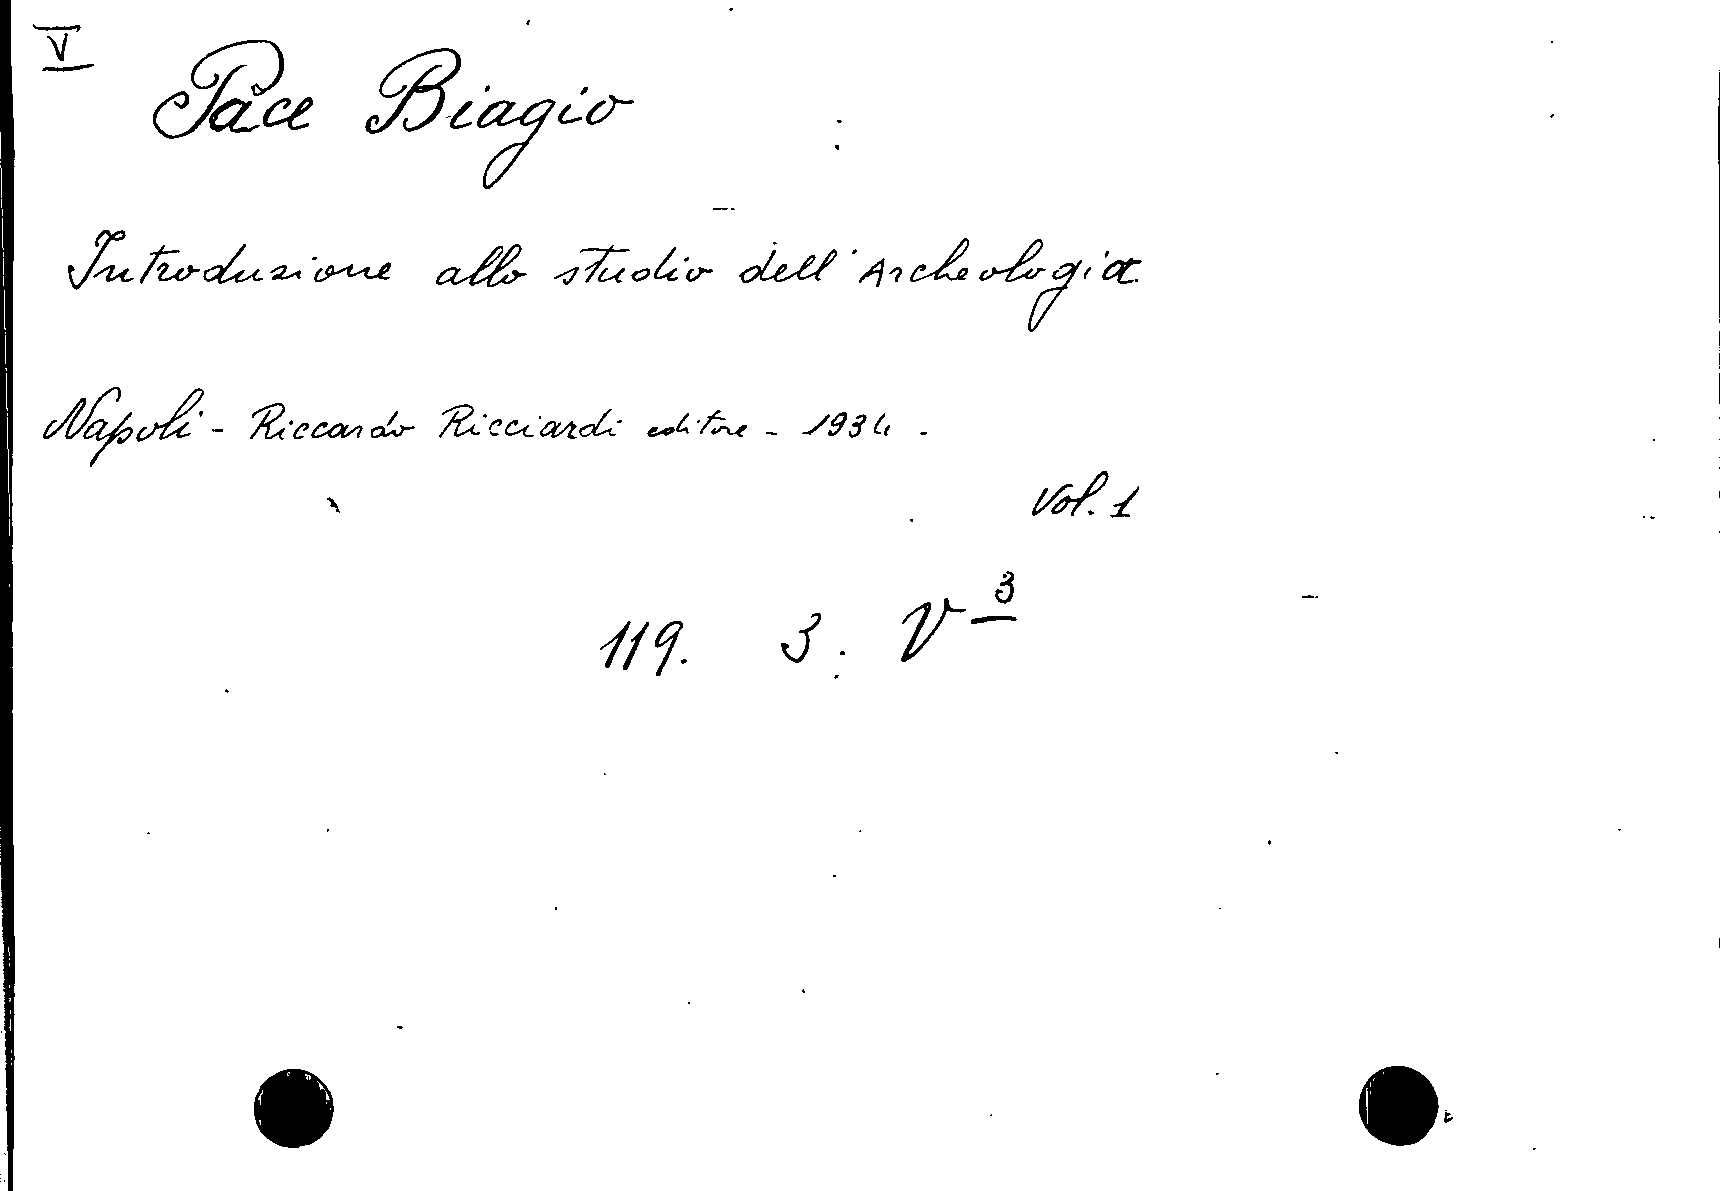 V
Pace Biagio
Introduzione allo studio dell'Archeologia
Napoli - Riccardo Ricciardi editore - 1934.
Vol. 1
119. 3. V 3